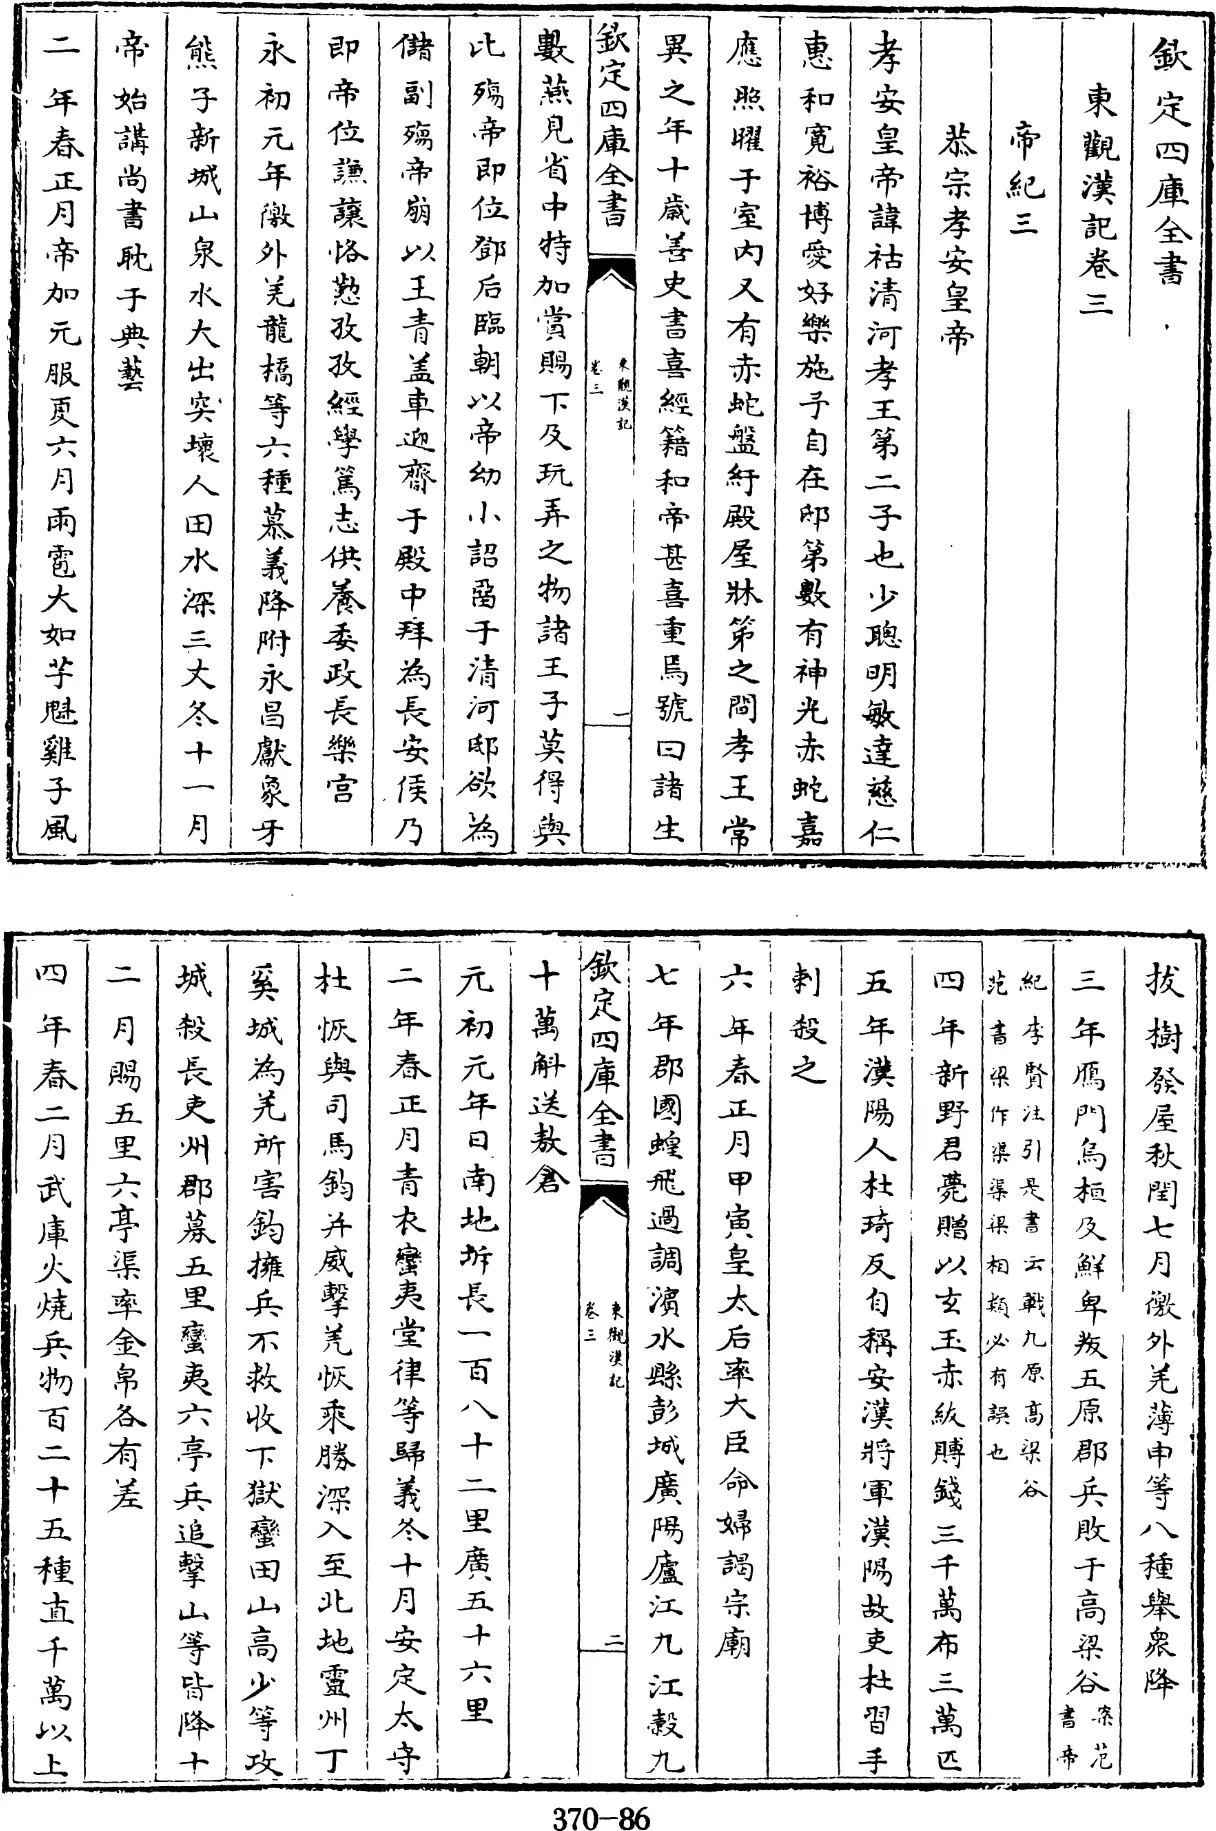 欽定四庫全書
東觀漢記卷三
帝紀三
恭宗孝安皇帝
孝安皇帝諱祜清河孝王第二子也少聰明敏達慈仁
惠和寬裕博愛好樂施予自在邸第數有神光赤蛇嘉
應照曜于室內又有赤蛇盤紆殿屋牀第之間孝王常
異之年十歲善史書喜經籍和帝甚喜重焉號曰諸生
欽定四庫全書
東觀漢記
卷三
一
數燕見省中特加賞賜下及玩弄之物諸王子莫得與
比殤帝即位鄧后臨朝以帝幼小詔留于清河邸欲為
儲副殤帝崩以王青蓋車迎齋于殿中拜為長安侯乃
即帝位謙讓恪懃孜孜經學篤志供養委政長樂宮
永初元年徼外羌龍橋等六種慕義降附永昌獻象牙
熊子新城山泉水大出突壞人田水深三丈冬十一月
帝始講尚書耽于典藝
二年春正月帝加元服夏六月雨雹大如芋魁雞子風
拔樹發屋秋閏七月徼外羌薄申等八種舉衆降
三年鴈門烏桓及鮮卑叛五原郡兵敗于高梁谷案范書帝
紀李賢注引是書云戰九原高梁谷
范書梁作渠渠梁相類必有誤也
四年新野君薨贈以玄玉赤紱賻錢三千萬布三萬匹
五年漢陽人杜琦反自稱安漢將軍漢陽故吏杜習手
刺殺之
六年春正月甲寅皇太后率大臣命婦謁宗廟
七年郡國蝗飛過調濱水縣彭城廣陽廬江九江穀九
欽定四庫全書
東觀漢記
卷三
二
十萬斛送敖倉
元初元年日南地坼長一百八十二里廣五十六里
二年春正月青衣蠻夷堂律等歸義冬十月安定太守
杜恢與司馬鈞并威擊羌恢乘勝深入至北地靈州丁
奚城為羌所害鈞擁兵不救收下獄蠻田山高少等攻
城殺長吏州郡募五里蠻夷六亭兵追擊山等皆降十
二月賜五里六亭渠率金帛各有差
四年春二月武庫火燒兵物百二十五種直千萬以上
370-86